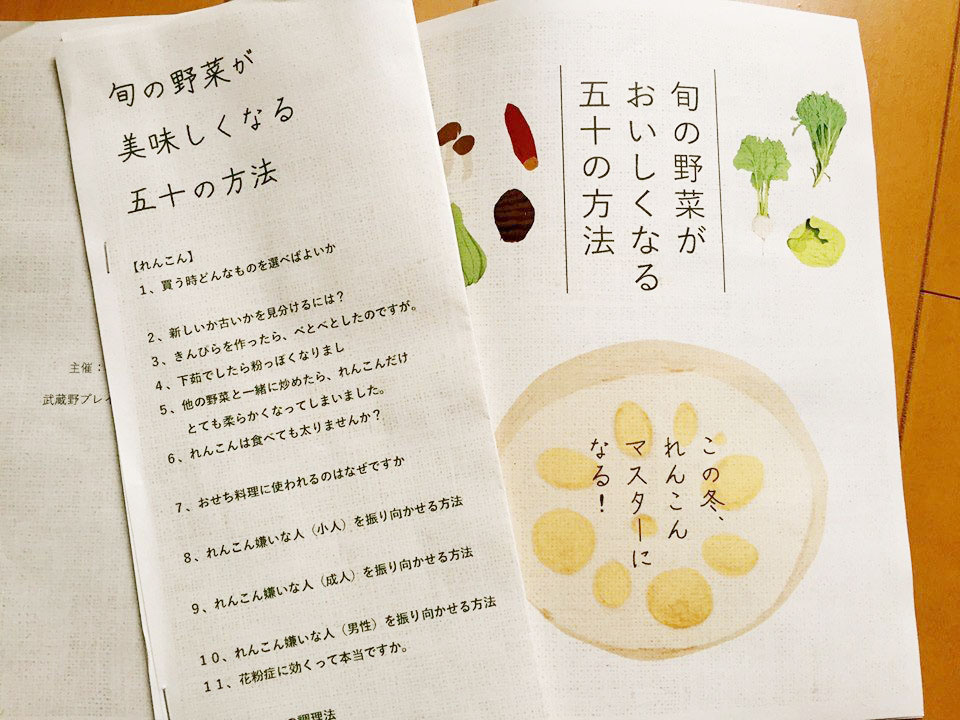 旬の野菜が
美味しくなる
五十の方法
【れんこん】
1、買う時どんなものを選べばよいか
2、新しいか古いかを見分けるには？
3、きんぴらを作ったら、べとべとしたのですが。
4、下茹でしたら粉っぽくなりまし
5、他の野菜と一緒に炒めたら、れんこんだけ
とても柔らかくなってしまいました。
6、れんこんは食べても太りませんか？
7、おせち料理に使われるのはなぜですか
8、れんこん嫌いな人（小人）を振り向かせる方法
9、れんこん嫌いな人（成人）を振り向かせる方法
10、れんこん嫌いな人（男性）を振り向かせる方法
11、花粉症に効くって本当ですか。
の調理法
主催：
武蔵野ブレイ
旬の野菜が
おいしくなる
五十の方法
この冬、
れんこん
マスターに
なる！